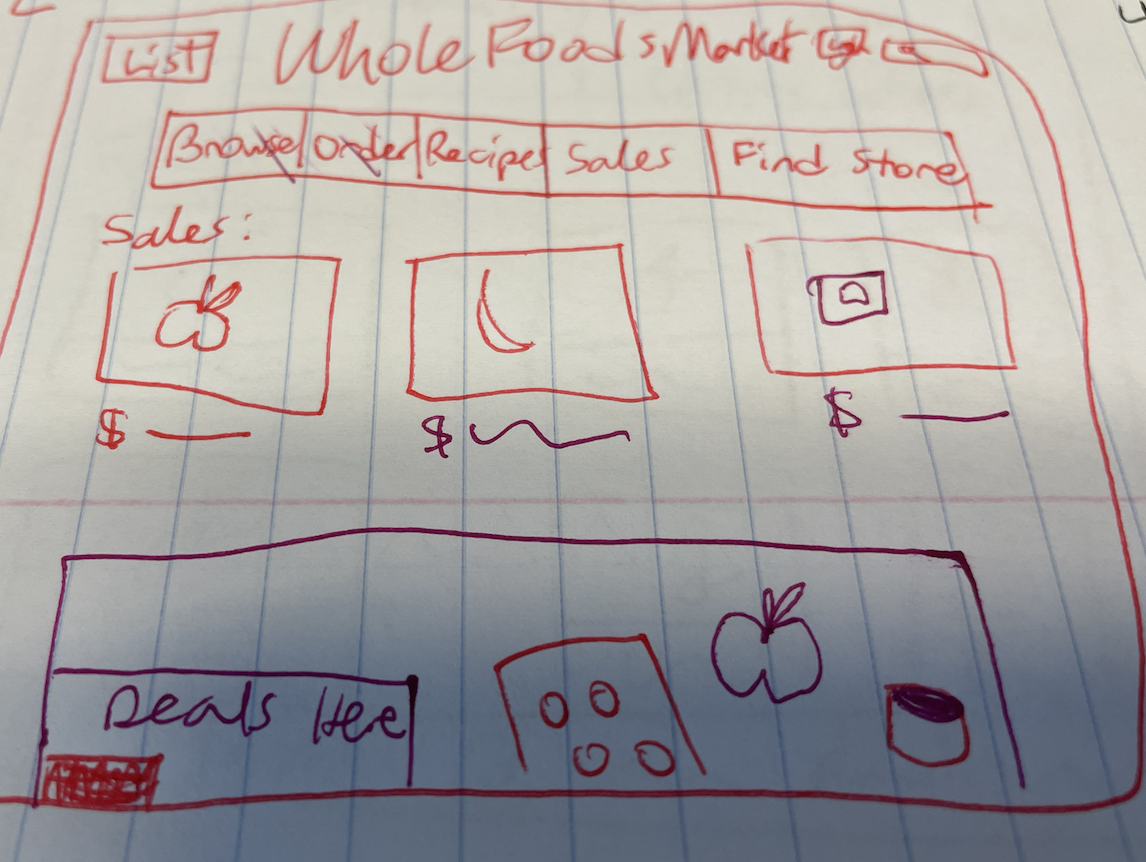 List Whole Foods Market
Browse Order Recipes Sales Find Store
Sales:
$ $ $
Deals Here